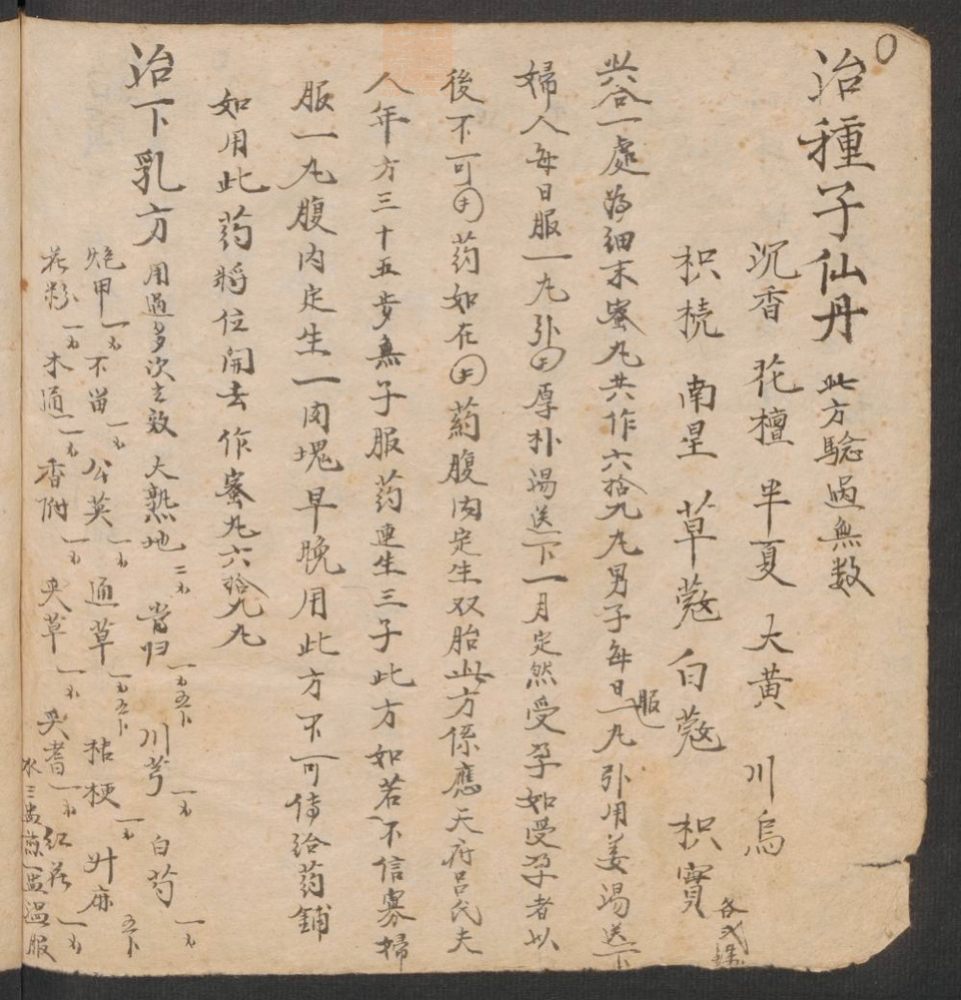 治種子仙丹 此方驗過無数
沉香 花檀 半夏 大黄 川烏
枳梡 南星 草蔲 白蔲 枳實 各弍錢
共合一處為细末蜜丸共作六拾九丸男子每日服一丸引用姜湯送下
婦人每日服一丸引用厚朴湯送下一月定然受孕如受孕者以
後不可用药如在用葯腹内定生双胎此方係應天府吕氏夫
人年方三十五步無子服药連生三子此方如若不信寡婦
服一丸腹内定生一肉塊早晚用此方不可傳给药鋪
如用此药將位開去作蜜丸六拾九丸
治下乳方 用過多次立效 大熟地 二 當归 一 五 川芎 一 白芍 一
炮甲 一 不留 一 公英 一 通草 一 五 桔梗 一 升麻 五
花粉 一 木通 一 香附 一 炙草 一 炙耆 一 红花 一
水三盅煎一盅温服